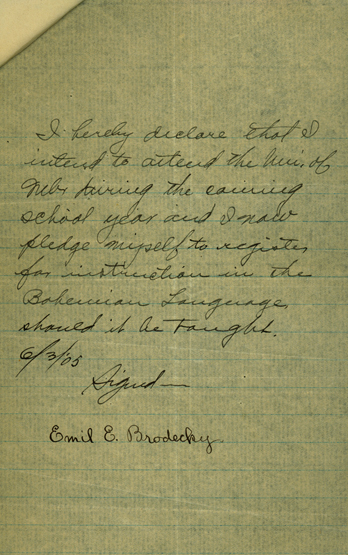 I hereby declare that I
intend to attend the Uni. of
Nebr during the coming
school year and I now
pledge myself to register
for instruction in the
Bohemian Language,
should it be taught.
6/3/05
Signed
Emil E. Brodecky.